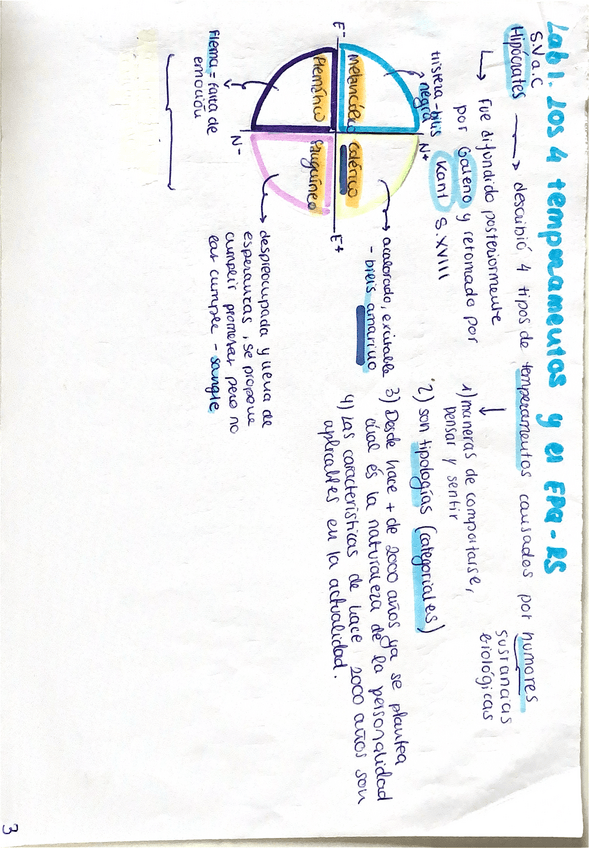 Lab 1. Los 4 temperamentos y el EPQ-RS
S.V a.C
Hipócrates → describió 4 tipos de temperamentos causados por humores
sustancias
biológicas
↳ Fue difundido posteriormente
por Galeno y retomado por
Kant S.XVIII
1) maneras de comportarse,
pensar y sentir
2) son tipologías (categoriales)
3) Desde hace + de 2000 años ya se plantea
cuál es la naturaleza de la personalidad
4) Las características de hace 2000 años son
aplicables en la actualidad.
tristeza-bilis
negra
N+
E-
Melancólico
Colérico
Flemático
Sanguíneo
E+
N-
acalorado, excitable
- bilis amarillo
Flema = falta de
emoción
despreocupada y llena de
esperanzas, se propone
cumplir promesas pero no
las cumple - sangre
3